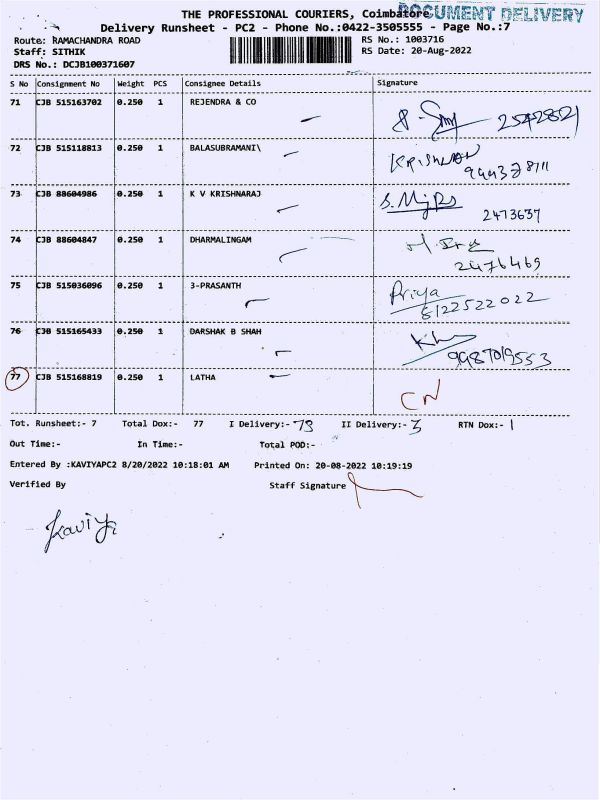 THE PROFESSIONAL COURIERS, Coimbatore
DOCUMENT DELIVERY
Delivery Runsheet - PC2 - Phone No.:0422-3505555 - Page No.:7
Route: RAMACHANDRA ROAD RS No.: 1003716
Staff: SITHIK RS Date: 20-Aug-2022
DRS No.: DCJB100371607
S No Consignment No Weight PCS Consignee Details Signature
71 CJB 515163702 0.250 1 REJENDRA & CO
2542821
72 CJB 515118813 0.250 1 BALASUBRAMANI\ KRISHNAN
73 CJB 88604986 0.250 1 K V KRISHNARAJ
2473637
74 CJB 88604847 0.250 1 DHARMALINGAM
2476469
75 CJB 515036096 0.250 1 3-PRASANTH Priya
8122522022
76 CJB 515165433 0.250 1 DARSHAK B SHAH
9987019553
77 CJB 515168819 0.250 1 LATHA
CN
Tot. Runsheet:- 7 Total Dox:- 77 I Delivery:- 73 II Delivery:- 3 RTN Dox:- 1
Out Time:- In Time:- Total POD:-
Entered By :KAVIYAPC2 8/20/2022 10:18:01 AM Printed On: 20-08-2022 10:19:19
Verified By Staff Signature
Kaviya